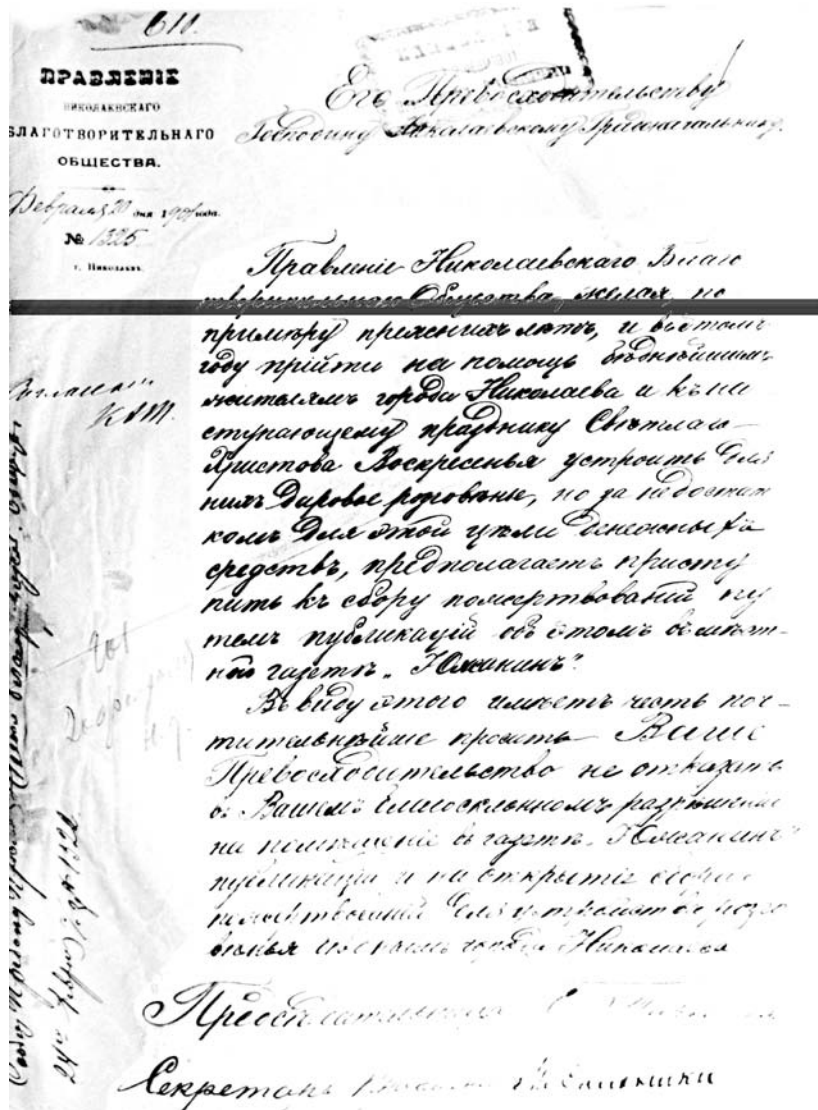 611.
ПРАВЛЕНІЕ
НИКОЛАЕВСКАГО
БЛАГОТВОРИТЕЛЬНАГО
ОБЩЕСТВА.
Февраля 20 дня 1901 года.
№ 1325
г. Николаевъ.
Его Превосходительству
Господину Николаевскому Градоначальнику.
Правленіе Николаевскаго Благо
творительнаго Общества, желая, по
примѣру прежнихъ лѣтъ, и въ этомъ
году прійти на помощь бѣднѣйшимъ
жителямъ города Николаева и къ на
ступающему празднику Свѣтлаго
Христова Воскресенья устроить для
нихъ даровое розговѣнье, но за недостат
комъ для этой цѣли денежныхъ
средствъ, предполагаетъ присту
пить къ сбору пожертвованій пу
темъ публикацій объ этомъ въ мѣст-
ной газетѣ „Южанинъ".
Въ виду этого имѣетъ честь поч-
тительнѣйше просить Ваше
Превосходительство не отказать
въ Вашемъ благосклонномъ разрѣшеніи
на помѣщеніе въ газетѣ „Южанинъ"
публикацій и на открытіе сбора
пожертвованій для устройства розго
вѣнья города Николаева
Предсѣдательница
Секретарь